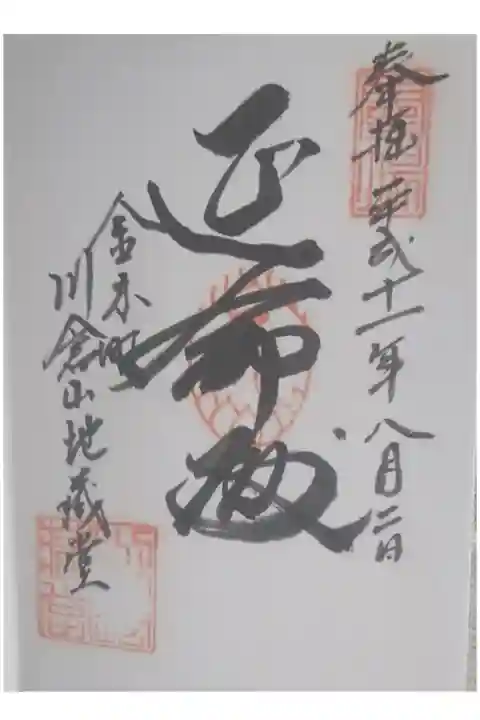 奉拝 平成十一年八月二日
延命
金木町
川倉山地蔵堂